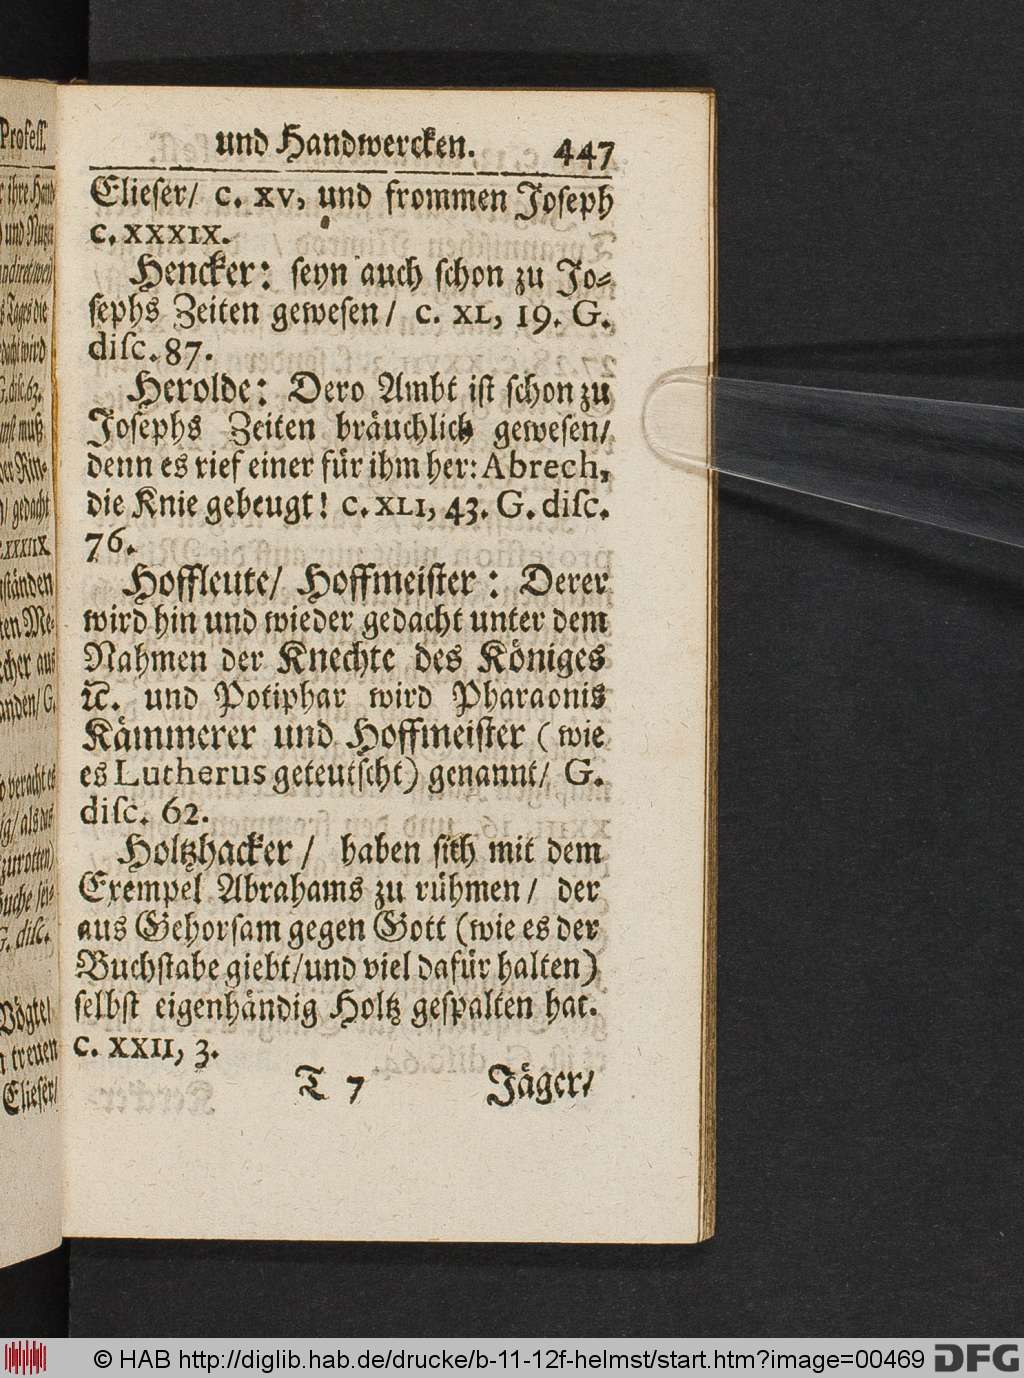 und Handwercken. 447
Elieser/ c. XV, und frommen Joseph
c. XXXIX.
Hencker: seyn auch schon zu Jo⸗
sephs Zeiten gewesen/ c. XL, 19. G.
disc. 87.
Herolde: Dero Ambt ist schon zu
Josephs Zeiten bräuchlich gewesen/
denn es rief einer für ihm her: Abrech,
die Knie gebeugt! c. XLI, 43. G. disc.
76.
Hoffleute/ Hoffmeister: Derer
wird hin und wieder gedacht unter dem
Nahmen der Knechte des Königes
ꝛc. und Potiphar wird Pharaonis
Kämmerer und Hoffmeister (wie
es Lutherus geteutscht) genannt/ G.
disc. 62.
Holtzhacker/ haben sich mit dem
Exempel Abrahams zu rühmen/ der
aus Gehorsam gegen Gott (wie es der
Buchstabe giebt/und viel dafür halten)
selbst eigenhändig Holtz gespalten hat.
c. XXII, 3.
T 7 Jäger/
© HAB http://diglib.hab.de/drucke/b-11-12f-helmst/start.htm?image=00469 DFG